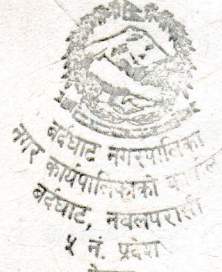 बर्दघाट नगरपालिका
नगर कार्यपालिकाको
बर्दघाट, नवलपरासी
५ नं. प्रदेश